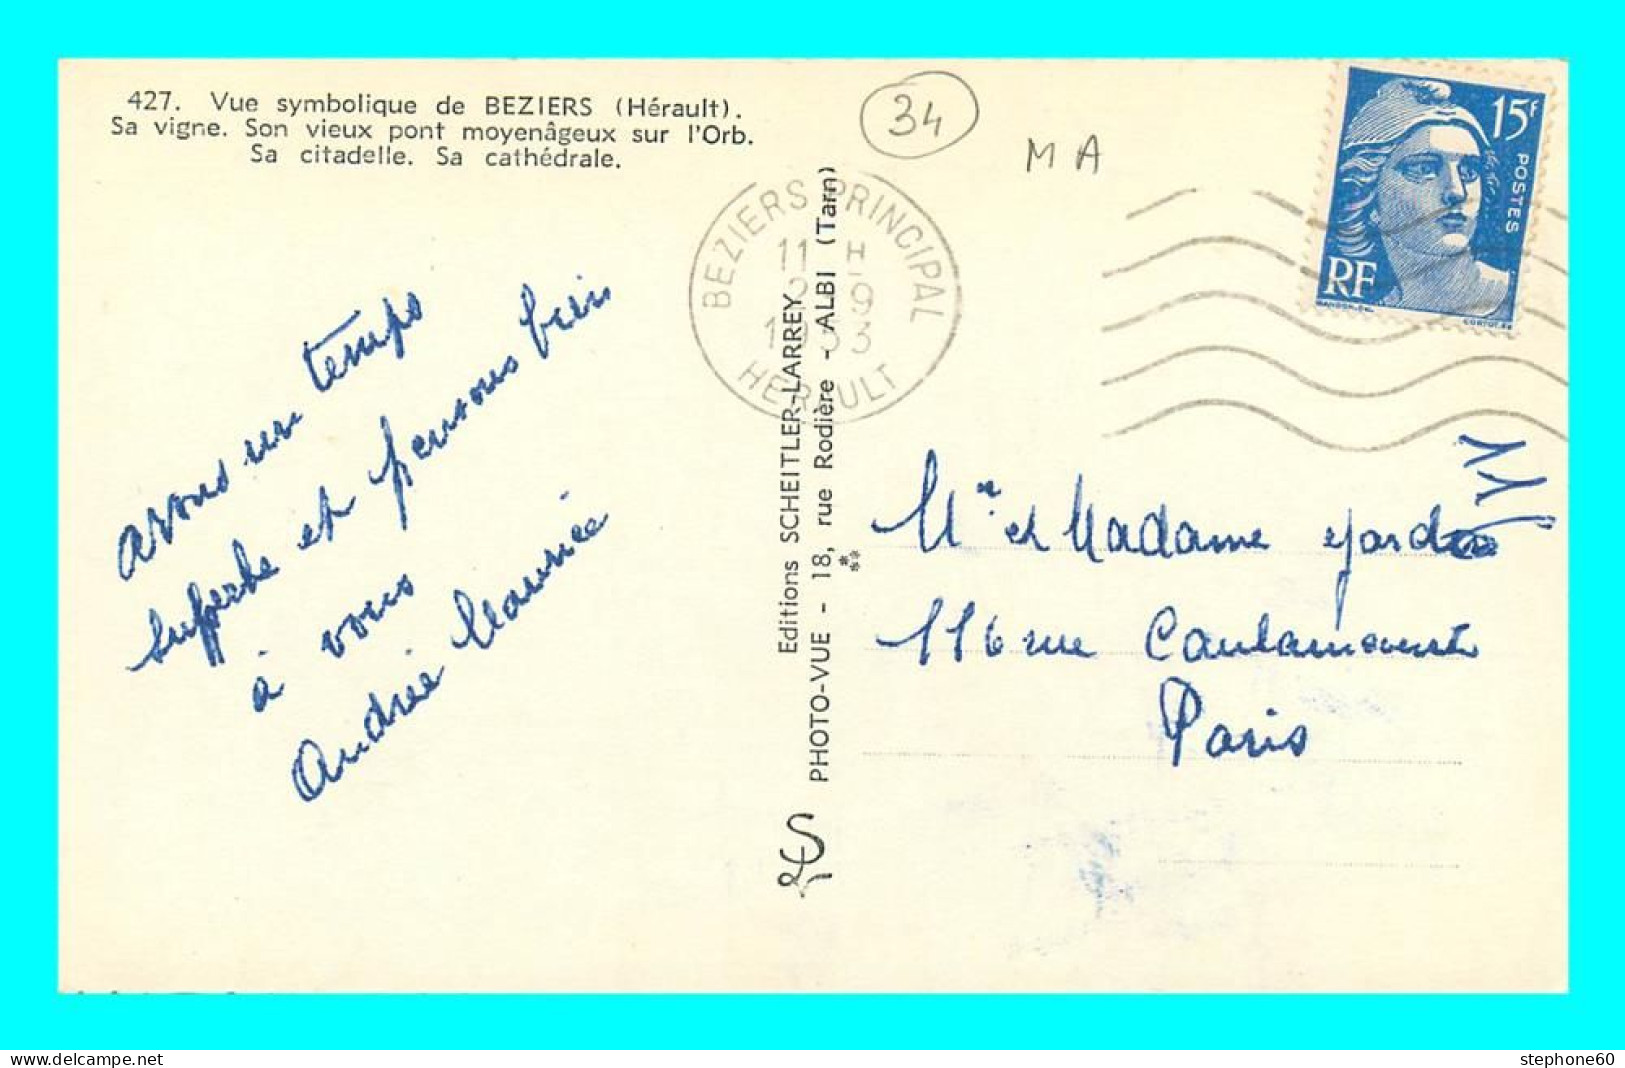 427. Vue symbolique de BEZIERS (Hérault).
Sa vigne. Son vieux pont moyenâgeux sur l'Orb.
Sa citadelle. Sa cathédrale.
34
MA
15F
POSTES
RF
GANDON.DEL.
CORTOT.SC
BEZIERS PRINCIPAL
11 H
9
1953
HERAULT
avons un temps
superbe et pensons bien
à vous
Andrée Maurice
Editions SCHEITLER-LARREY
PHOTO-VUE - 18, rue Rodière - ALBI (Tarn)
Mr et Madame
116 rue Caulaincourt
Paris
www.delcampe.net
stephone60